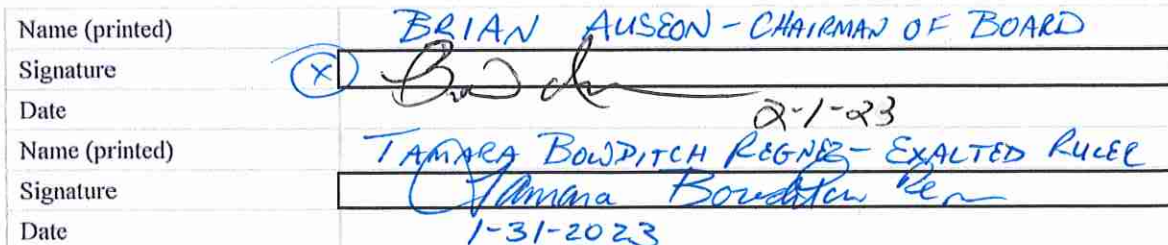 Name (printed) BRIAN AUSEON - CHAIRMAN OF BOARD
Signature X
Date 2-1-23
Name (printed) TAMARA BOWDITCH REGNER - EXALTED RULER
Signature Tamara Bowditch
Date 1-31-2023